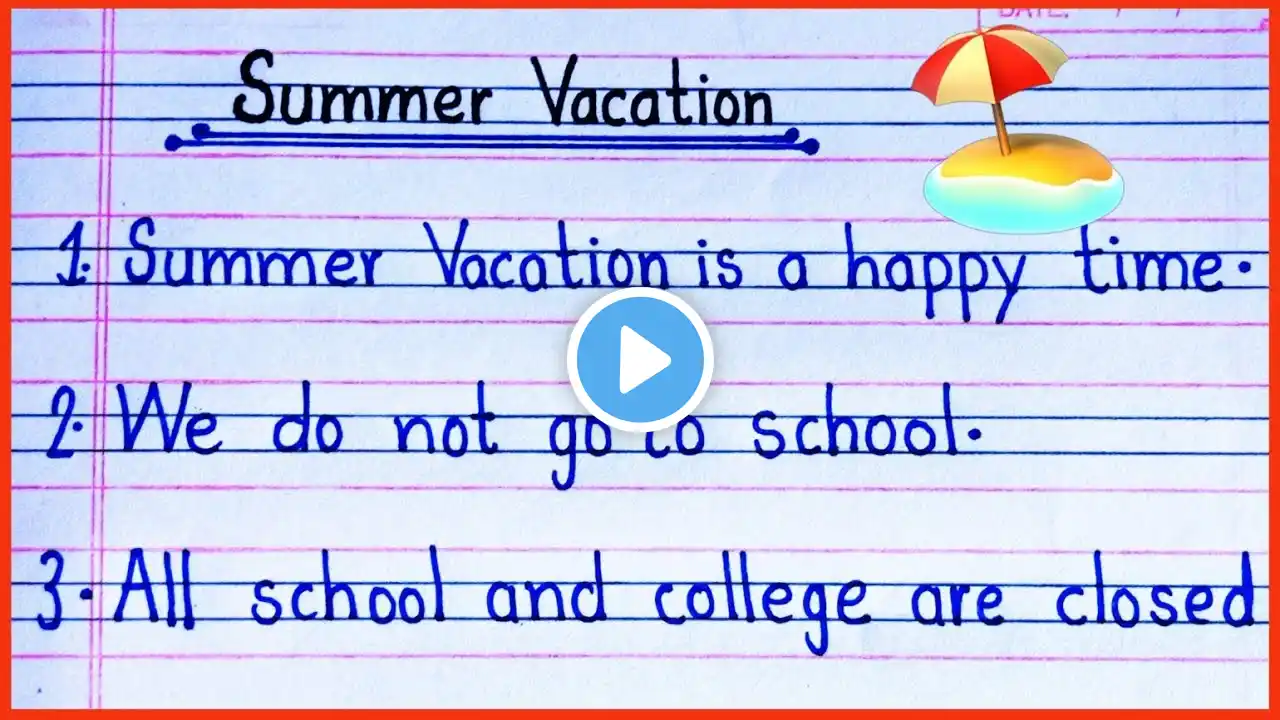 DATE: / /
Summer Vacation
1. Summer Vacation is a happy time.
2. We do not go to school.
3. All school and college are closed